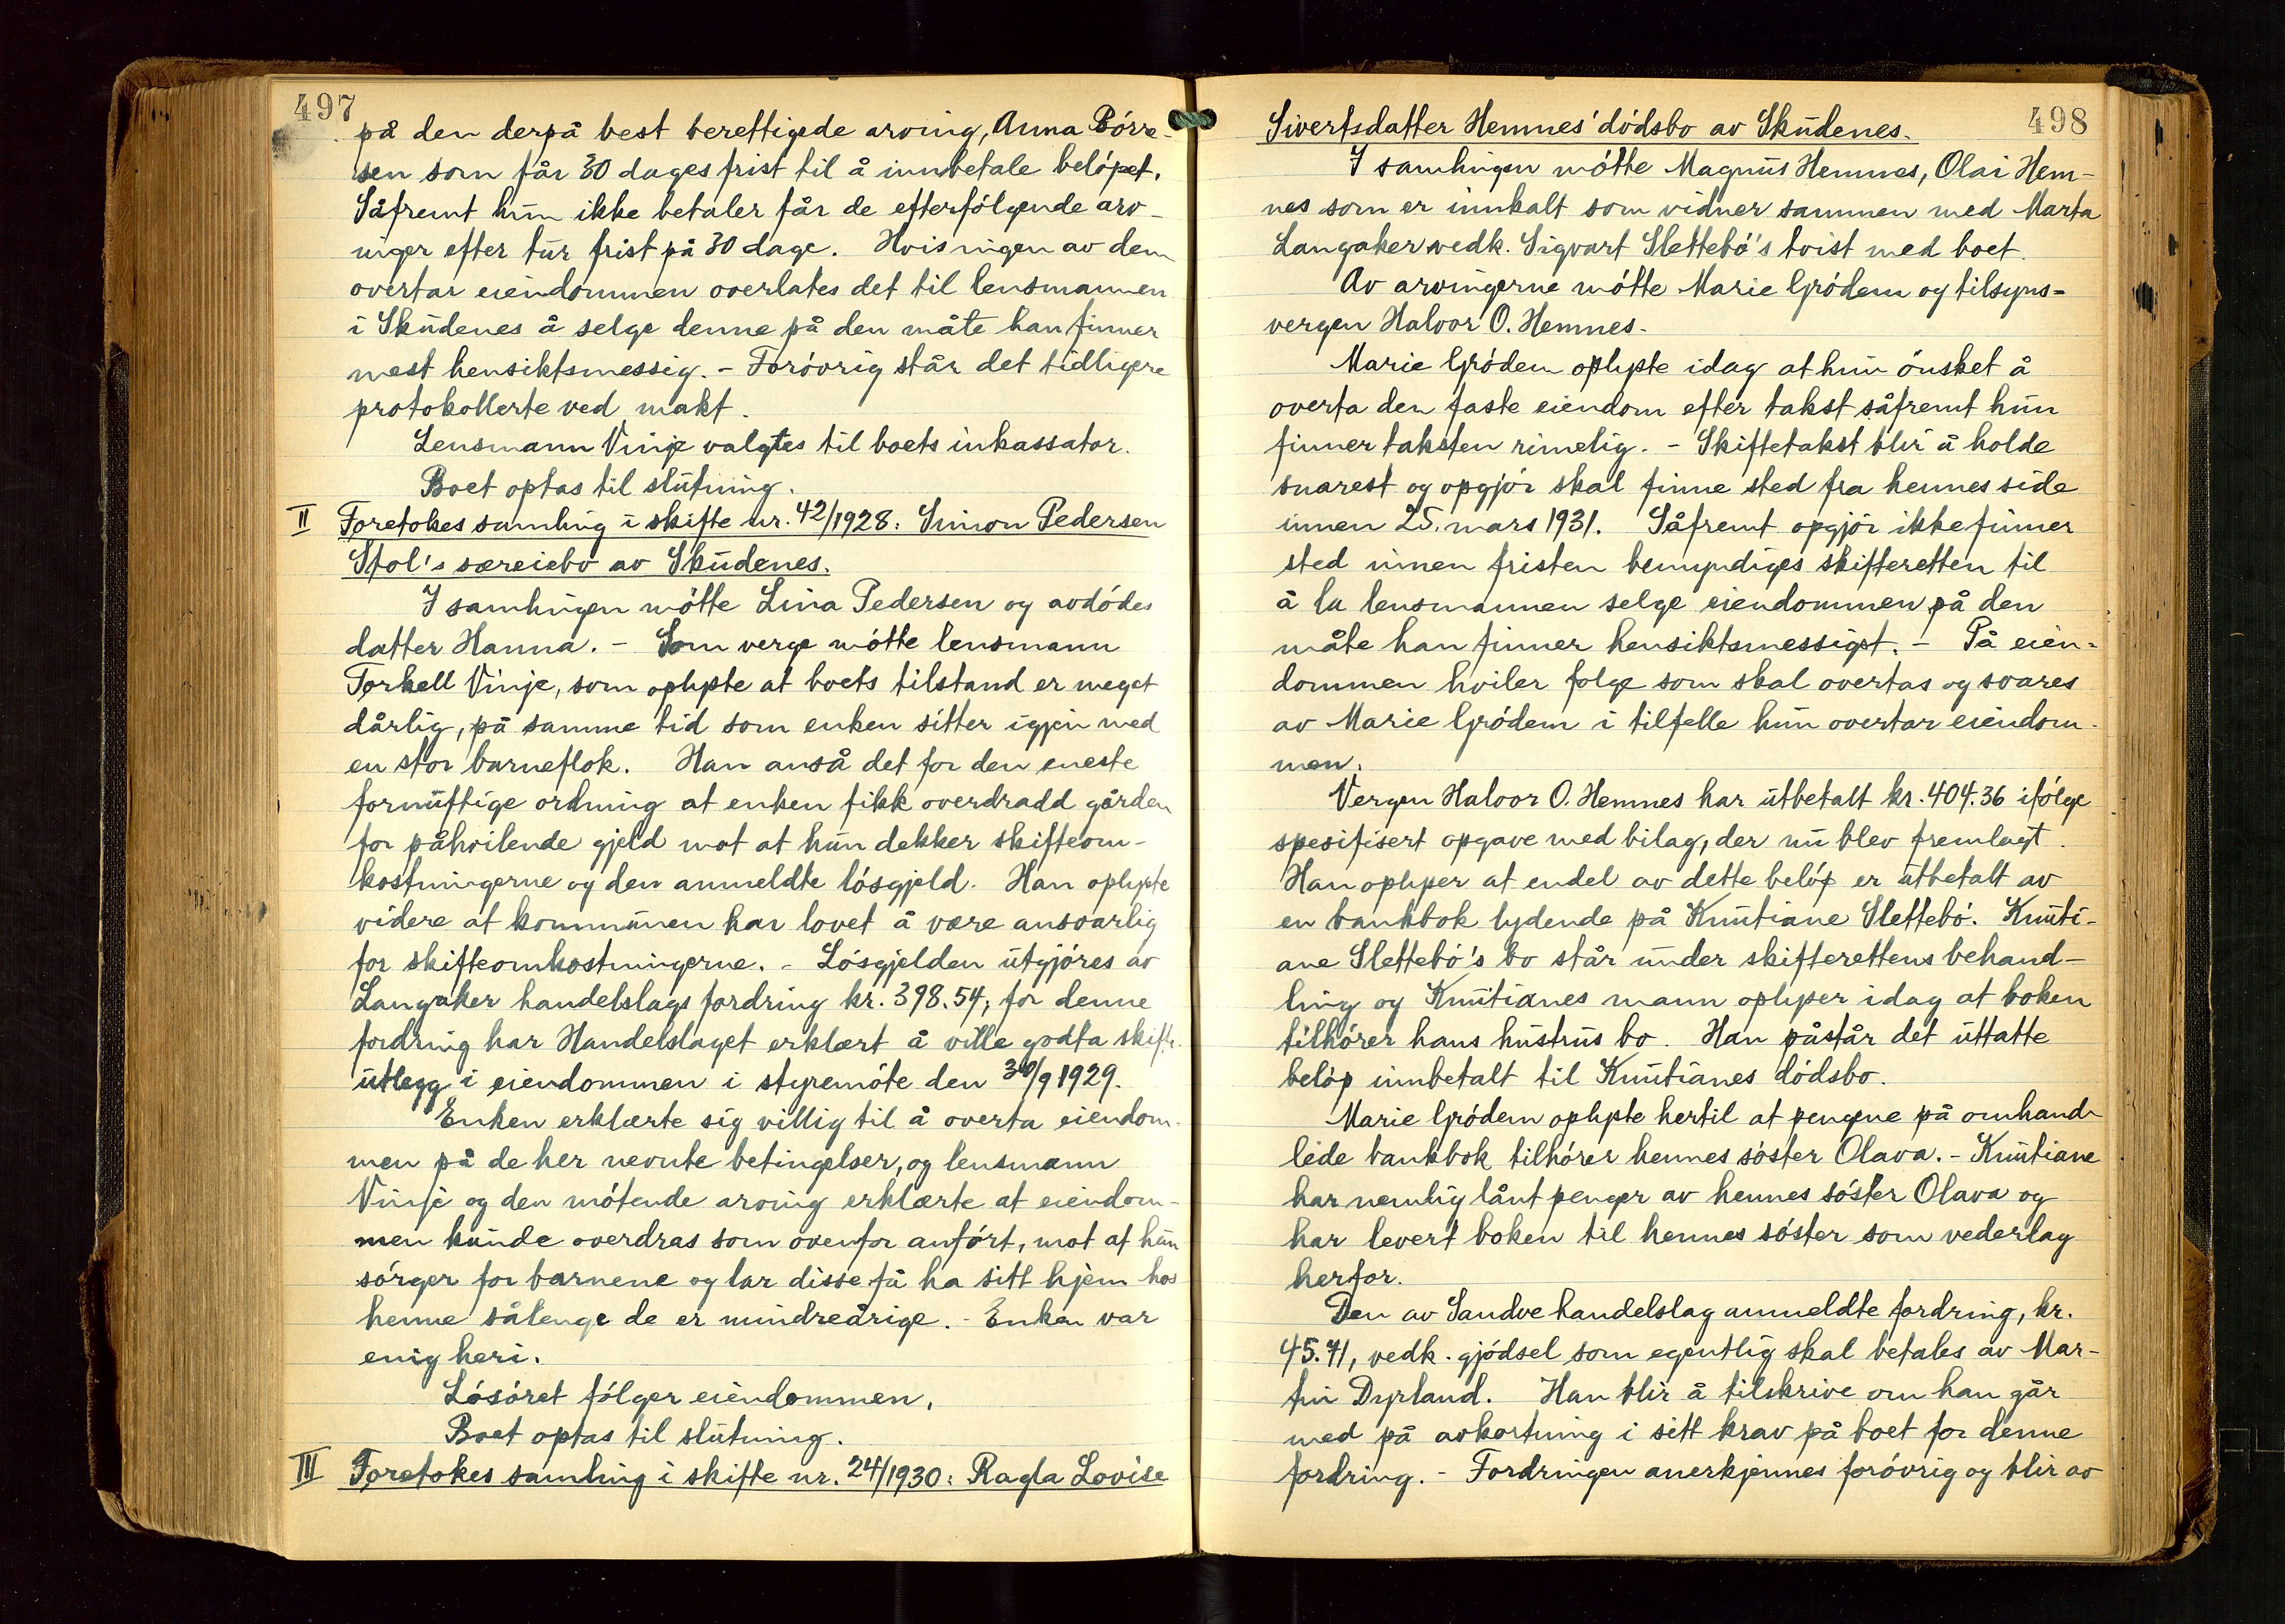 497
på den derpå best berettigede arving, Anna Börre-
sen som får 30 dages frist til å innbetale belöpet.
Såfremt hun ikke betaler får de efterfölgende arv-
inger efter tur frist på 30 dage. Hvis ingen av dem
overtar eiendommen overlates det til lensmannen
i Skudenes å selge denne på den måte han finner
mest hensiktsmessig. - Foróvrig står det tidligere
protokollerte ved makt.
Lensmann Vinje valgtes til boets inkassator.
Boet optas til slutning.
II Foretokes samling i skifte nr. 42/1928: Simon Pedersen
Stol's særeiebo av Skudenes.
I samlingen mötte Lina Pedersen og avdödes
datter Hanna. - Som verge mötte lensmann
Torkell Vinje, som oplyste at boets tilstand er meget
dårlig, på samme tid som enken sitter igjen med
en stor barneflok. Han anså det for den eneste
fornuftige ordning at enken fikk overdradd gården
for påhvilende gjeld mot at hun dekker skifteom-
kostningerne og den anmeldte lösgjeld. Han oplyste
videre at kommunen har lovet å være ansvarlig
for skifteomkostningerne. - Lösgjelden utgjöres av
Langåker handelslags fordring kr. 398.54; for denne
fordring har Handelslaget erklært å ville godta skifte-
utlegg i eiendommen i styremöte den 30/9 1929.
Enken erklærte sig villig til å overta eiendom-
men på de her nevnte betingelser, og lensmann
Vinje og den mötende arving erklærte at eiendom-
men kunde overdras som ovenfor anfört, mot at hun
sörger for barnene og lar disse få ha sitt hjem hos
henne sålenge de er mindreårige. - Enken var
enig heri.
Lösöret fölger eiendommen.
Boet optas til slutning.
III Foretokes samling i skifte nr. 24/1930: Ragla Lovise
498
Sivertsdatter Hemnes' dödsbo av Skudenes.
I samlingen mötte Magnus Hemnes, Olai Hem-
nes som er innkalt som vidner sammen med Marta
Langaker vedk. Sigvart Slettebö's tvist med boet.
Av arvingerne mötte Marie Grödem og tilsyns-
vergen Halvor O. Hemnes.
Marie Grödem oplyste idag at hun önsket å
overta den faste eiendom efter takst såfremt hun
finner taksten rimelig. - Skiftetakst blir å holde
snarest og opgjör skal finne sted fra hennes side
innen 25. mars 1931. Såfremt opgjör ikke finner
sted innen fristen bemyndiges skifteretten til
å la lensmannen selge eiendommen på den
måte han finner hensiktsmessigst. - På eien-
dommen hviler folge som skal overtas og svares
av Marie Grödem i tilfelle hun overtar eiendom-
men.
Vergen Halvor O. Hemnes har utbetalt kr. 404.36 ifölge
spesifisert opgave med bilag, der nu blev fremlagt.
Han oplyser at endel av dette belöp er utbetalt av
en bankbok lydende på Knutiane Slettebö. Knuti-
ane Slettebö's bo står under skifterettens behand-
ling og Knutianes mann oplyser idag at boken
tilhörer hans hustrus bo. Han påstår det uttatte
belöp innbetalt til Knutianes dödsbo.
Marie Grödem oplyste hertil at pengene på omhand-
lede bankbok tilhörer hennes söster Olava. - Knutiane
har nemlig lånt penger av hennes söster Olava og
har levert boken til hennes söster som vederlag
herfor.
Den av Sandve handelslag anmeldte fordring, kr.
45.71, vedk. gjödsel som egentlig skal betales av Mar-
tin Dyrland. Han blir å tilskrive om han går
med på avkortning i sitt krav på boet for denne
fordring. - Fordringen anerkjennes foróvrig og blir av